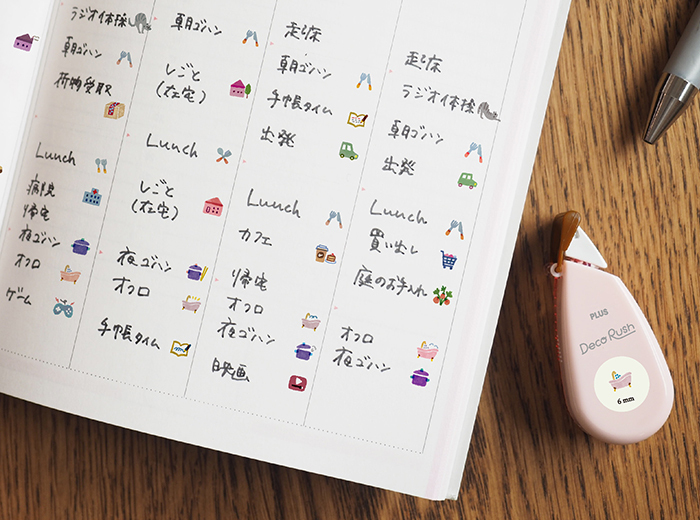 ラジオ体操
朝ゴハン
荷物受取
Lunch
病院
帰宅
夜ゴハン
オフロ
ゲーム
朝ゴハン
しごと
(在宅)
Lunch
しごと
(在宅)
夜ゴハン
オフロ
手帳タイム
起床
朝ゴハン
手帳タイム
出発
Lunch
カフェ
帰宅
オフロ
夜ゴハン
映画
起床
ラジオ体操
朝ゴハン
出発
Lunch
買い出し
庭のお手入れ
オフロ
夜ゴハン
PLUS
Deco Rush
6 mm